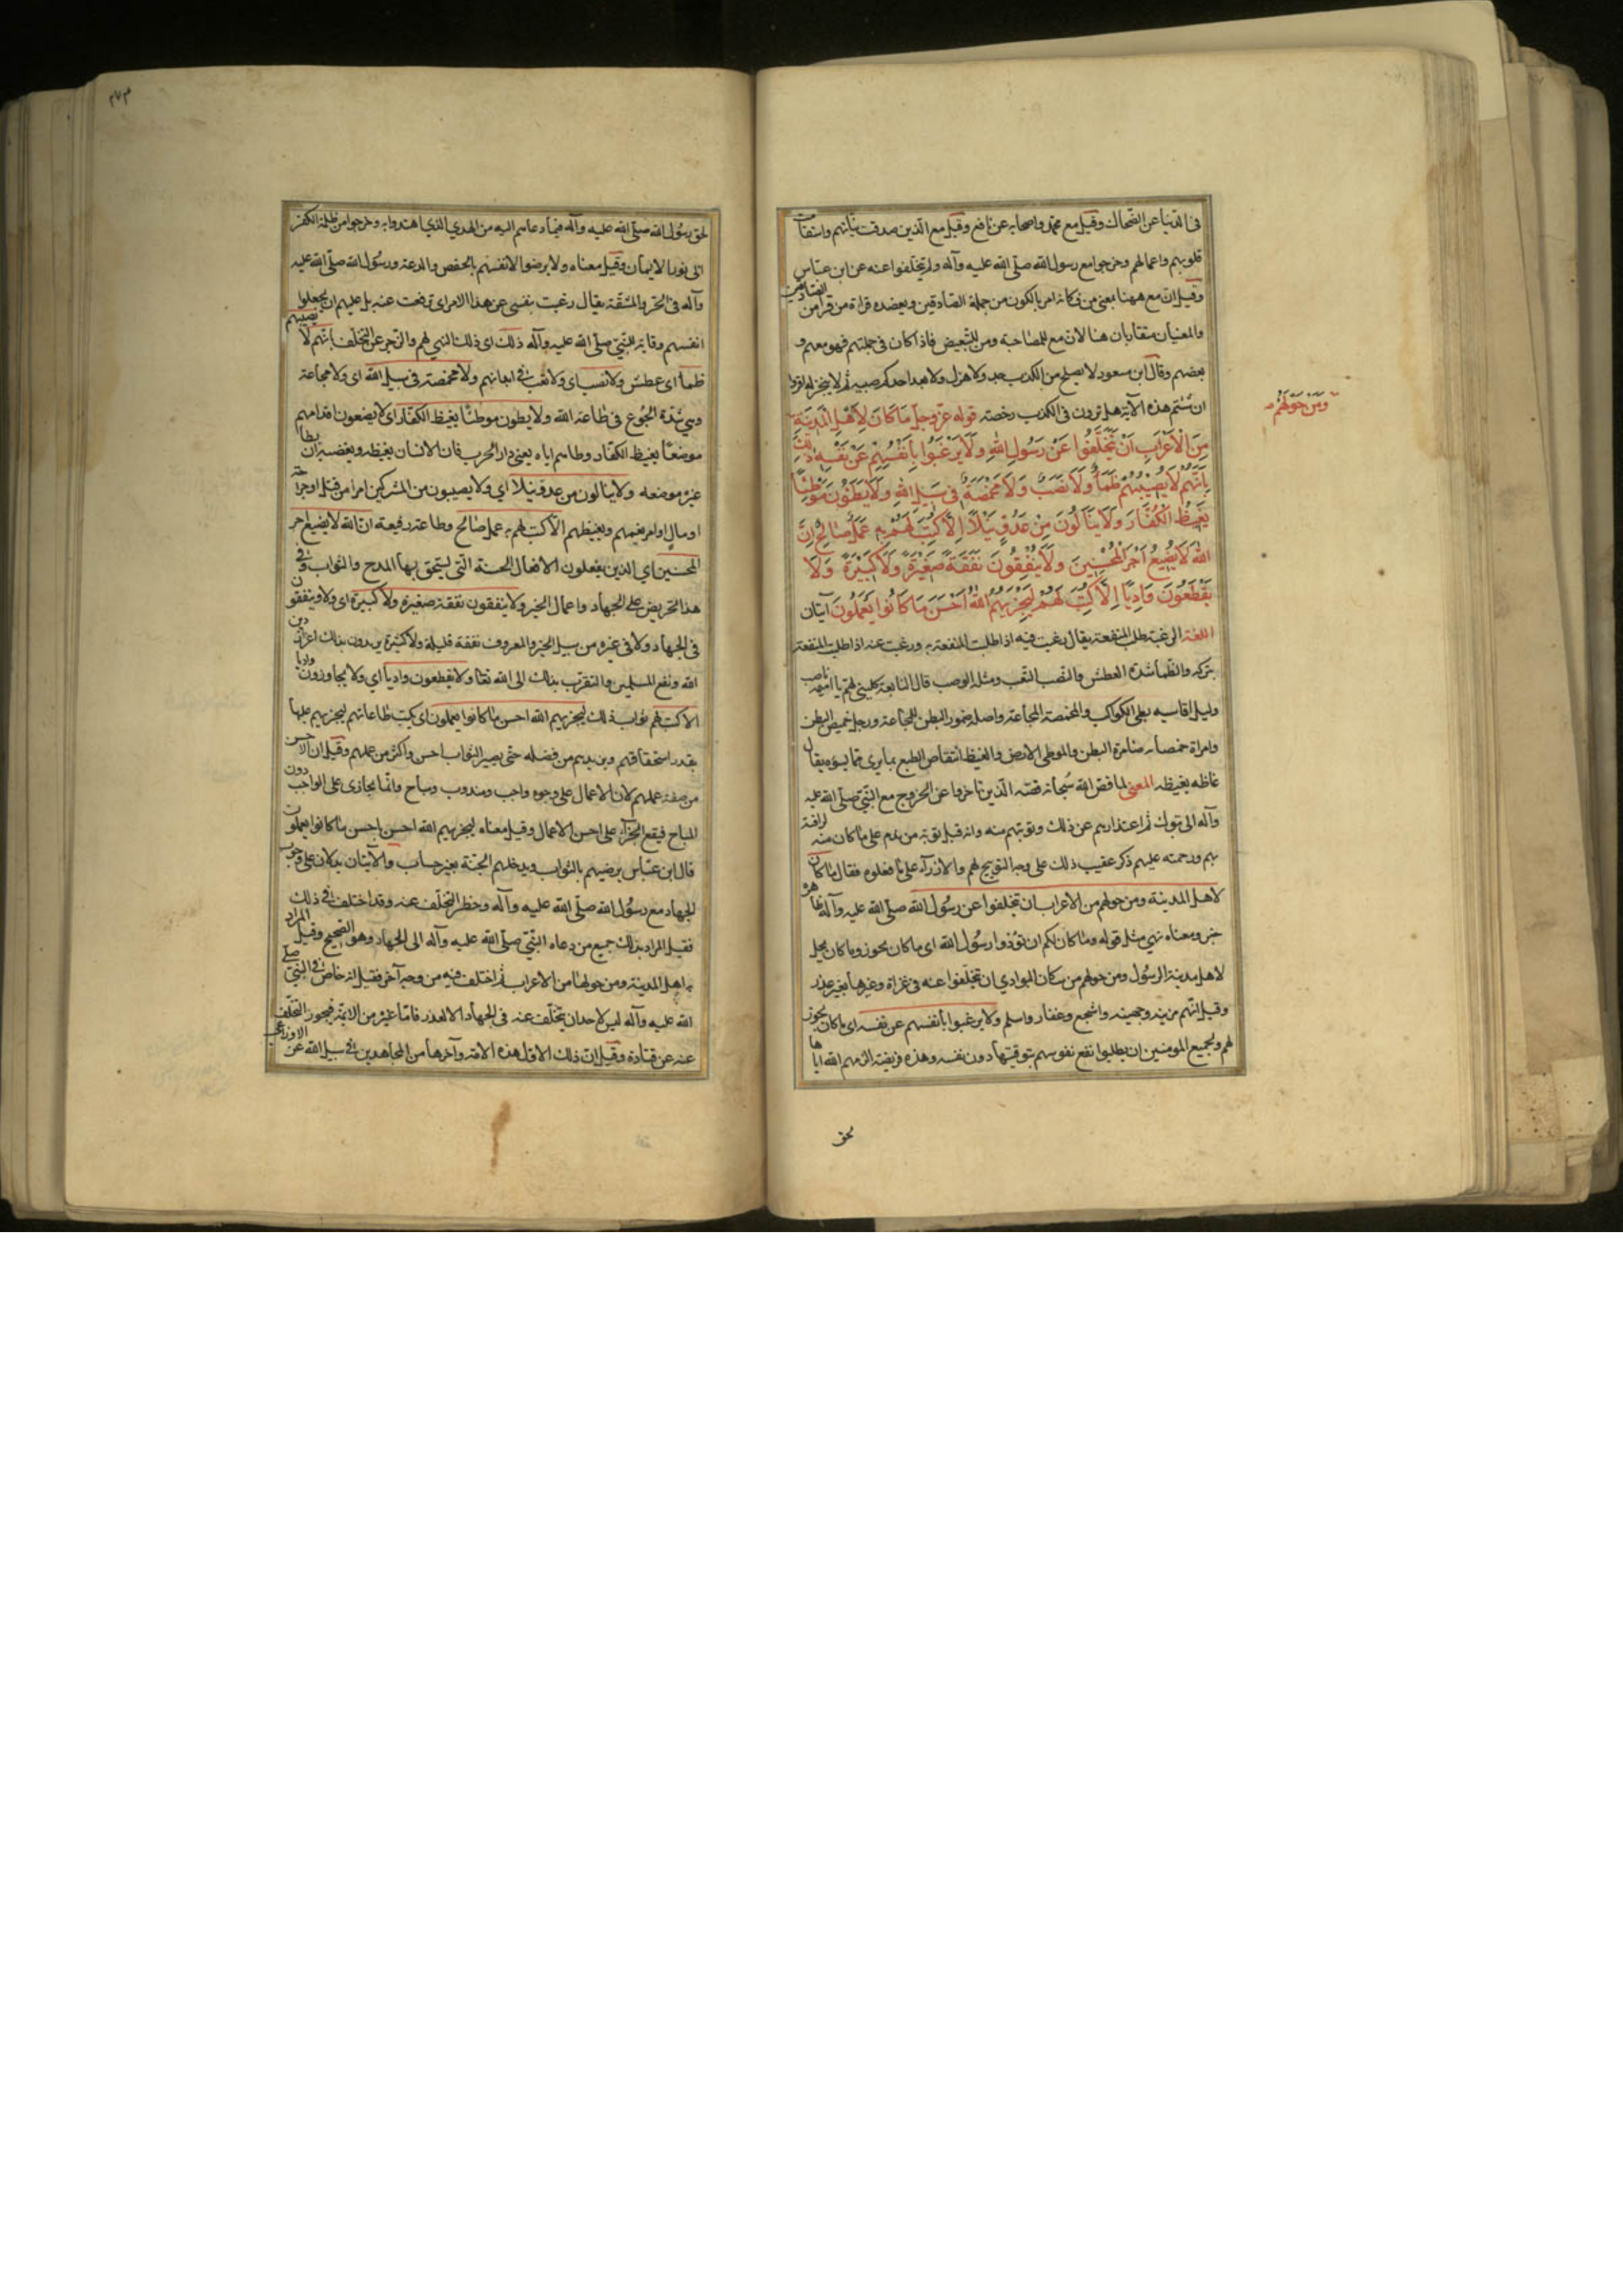 فى الدنيا عن الضحاك وقيل مع محمد واصحابه عن نافع وقيل مع الذين صدقت نياتهم واستقامت
قلوبهم واعمالهم وخرجوا مع رسول الله صلى الله عليه وآله ولم يتخلفوا عنه عن ابن عباس
وقيل ان مع ههنا بمعنى من فكانه امر بالكون من جملة الصادقين ويعضده قراءة من قرا من الصادقين
والمعنيان متقاربان هنا لان مع للمصاحبة ومن للتبعيض فاذا كان فى جملتهم فهو معهم و
بعضهم وقال ابن مسعود لا يصلح من الكذب جد ولا هزل ولا يعد احدكم صبيه ثم لا ينجز له اقرؤا
ان شئتم هذه الآية هل ترون فى الكذب رخصة قوله عز وجل مَا كَانَ لِاَهْلِ الْمَدِينَةِ
ومن حولهم
مِنَ الْاَعْرَابِ اَنْ يَتَخَلَّفُوا عَنْ رَسُولِ اللهِ وَلَا يَرْغَبُوا بِاَنْفُسِهِمْ عَنْ نَفْسِهِ ذٰلِكَ
بِاَنَّهُمْ لَا يُصِيبُهُمْ ظَمَأٌ وَلَا نَصَبٌ وَلَا مَخْمَصَةٌ فِى سَبِيلِ اللهِ وَلَا يَطَئُونَ مَوْطِئًا
يَغِيظُ الْكُفَّارَ وَلَا يَنَالُونَ مِنْ عَدُوٍّ نَيْلًا اِلَّا كُتِبَ لَهُمْ بِهِ عَمَلٌ صَالِحٌ اِنَّ
اللهَ لَا يُضِيعُ اَجْرَ الْمُحْسِنِينَ وَلَا يُنْفِقُونَ نَفَقَةً صَغِيرَةً وَلَا كَبِيرَةً وَلَا
يَقْطَعُونَ وَادِيًا اِلَّا كُتِبَ لَهُمْ لِيَجْزِيَهُمُ اللهُ اَحْسَنَ مَا كَانُوا يَعْمَلُونَ آيتان
اللغة الرغبة طلب المنفعة يقال رغبت فيه اذا طلبت المنفعة به ورغبت عنه اذا طلبت المنفعة
بتركه والظما شدة العطش والنصب التعب ومثله الوصب قال النابغة كلينى لهم يا اميمة ناصب
وليل اقاسيه بطى الكواكب والمخمصة المجاعة واصله ضمور البطن للمجاعة ورجل خميص البطن
وامراة خمصانة ضامرة البطن والموطى الارض والغيظ انتقاض الطبع بما يرى مما يسوه يقال
غاظه يغيظه المعنى لما قص الله سبحانه قصة الذين تاخروا عن الخروج مع النبى صلى الله عليه
وآله الى تبوك ثم اعتذارهم عن ذلك وتوبتهم منه وانه قبل توبة من ندم على ما كان منه لرافته
بهم ورحمته عليهم ذكر عقيب ذلك على وجه التوبيخ لهم والازراء على ما فعلوه فقال ما كان
لاهل المدينة ومن حولهم من الاعراب ان يتخلفوا عن رسول الله صلى الله عليه وآله ظاهره
خبر ومعناه نهى مثل قوله وما كان لكم ان تؤذوا رسول الله اى ما كان يجوز وما كان يحل
لاهل مدينة الرسول ومن حولهم من سكان البوادى ان يتخلفوا عنه فى غزاة وغيرها بغير عذر
وقيل انهم مزينة وجهينة واشجع وغفار واسلم ولا يرغبوا بانفسهم عن نفسه اى ما كان يجوز
لهم ولجميع المومنين ان يطلبوا نفع نفوسهم بتوقيتها دون نفسه وهذه فريضة الزمهم الله اياها
لحق
٢٧٣
لحق رسول الله صلى الله عليه وآله فيما دعاهم اليه من الهدى الذى اهتدوا به وخرجوا من ظلمة الكفر
الى نور الايمان وقيل معناه ولا يرضوا لانفسهم بالخفض والدعة ورسول الله صلى الله عليه
وآله فى الحر والمشقة يقال رغبت بنفسى عن هذا الامر اى ترفعت عنه بل عليهم ان يجعلوا
انفسهم وقاية للنبى صلى الله عليه وآله ذلك اى ذلك النهى لهم والزجر عن التخلف بانهم لا يصيبهم
ظمأ اى عطش ولا نصب اى ولا تعب فى ابدانهم ولا مخمصة فى سبيل الله اى ولا مجاعة
وهى شدة الجوع فى طاعة الله ولا يطون موطئا يغيظ الكفار اى لا يضعون اقدامهم
موضعا يغيظ الكفار وطاهم اياه يعنى دار الحرب فان الانسان يغيظه ويغضبه ان يطا
غيره موضعه ولا ينالون من عدو نيلا اى ولا يصيبون من المشركين امرا من قتل او جراحة
او مال او امر يغمهم ويغيظهم الا كتب لهم به عمل صالح وطاعة رفيعة ان الله لا يضيع اجر
المحسنين اى الذين يفعلون الافعال الحسنة التى يستحق بها المدح والثواب وفى
هذا تحريض على الجهاد واعمال الخير ولا ينفقون نفقة صغيرة ولا كبيرة اى ولا ينفقون
فى الجهاد ولا فى غيره من سبيل الخير والمعروف نفقة قليلة ولا كثيرة يريدون بذلك اعزاز دين
الله ونفع المسلمين والتقرب بذلك الى الله تعا ولا يقطعون واديا اى ولا يجاوزون واديا
الا كتب لهم ثواب ذلك ليجزيهم الله احسن ما كانوا يعملون اى يكتب طاعاتهم ليجزيهم عليها
بقدر استحقاقهم ويزيدهم من فضله حتى يصير الثواب احسن واكثر من عملهم وقيل ان الاحسن
من صفة عملهم لان الاعمال على وجوه واجب ومندوب ومباح وانما يجازى على الواجب دون
المباح فيقع الجزآء على احسن الاعمال وقيل معناه ليجزيهم الله احسن احسن ما كانوا يعملون
قال ابن عباس يرضيهم بالثواب ويدخلهم الجنة بغير حساب والآيتان يدلان على وجوب
الجهاد مع رسول الله صلى الله عليه وآله وحظر التخلف عنه وقد اختلف فى ذلك
فقيل المراد بذلك جميع من دعاه النبى صلى الله عليه وآله الى الجهاد وهو الصحيح وقيل المراد
به اهل المدينة ومن حولها من الاعراب ثم اختلف فيه من وجه آخر فقيل انه خاص فى النبى صلى
الله عليه وآله ليس لاحد ان يتخلف عنه فى الجهاد الا لعذر فاما غيره من الائمة فيجوز التخلف
عنه عن قتادة وقيل ان ذلك لاول هذه الامة وآخرها من المجاهدين فى سبيل الله عن الاوزاعى